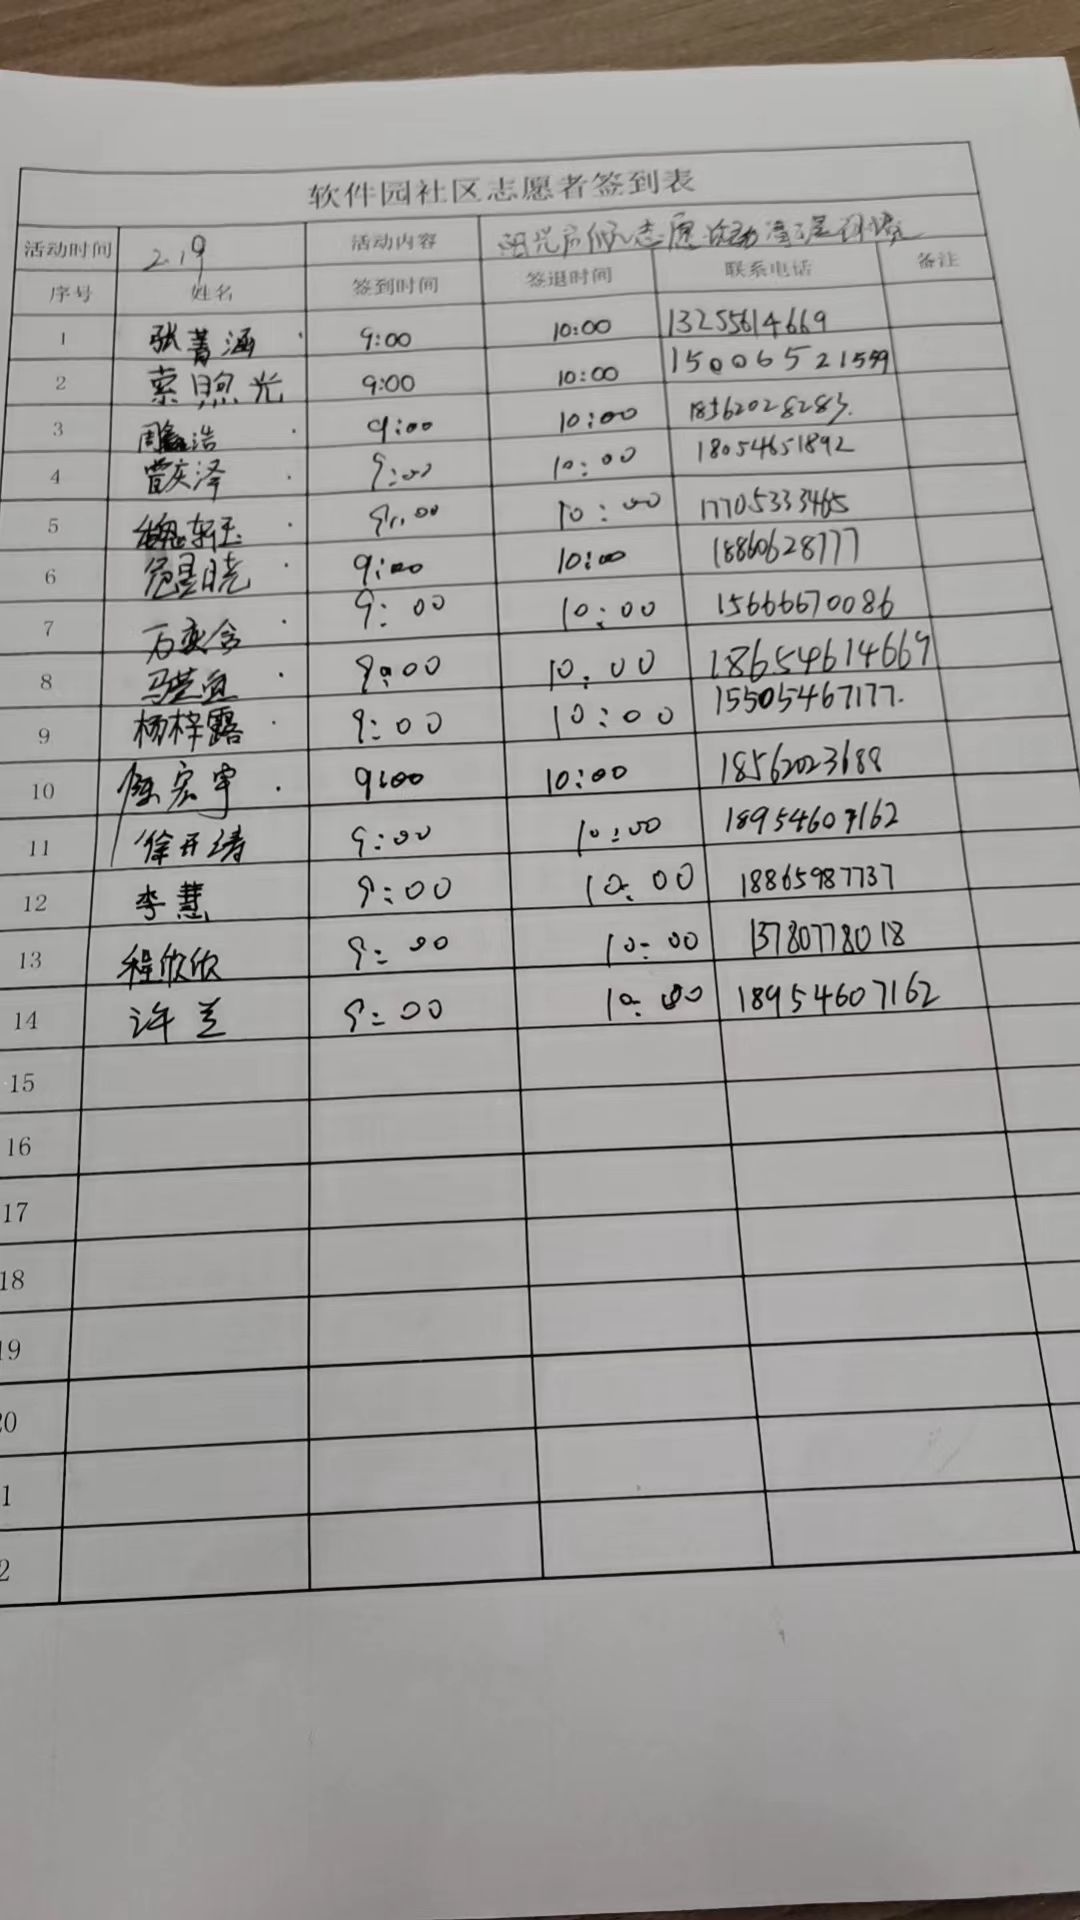 软件园社区志愿者签到表
活动时间 2.19 活动内容 志愿活动 清理环境
序号 姓名 签到时间 签退时间 联系电话 备注
1 张菁涵 9:00 10:00 13255614669
2 索煦光 9:00 10:00 15006521559
3 周鑫浩 9:00 10:00 18562028283.
4 曹庆泽 9:00 10:00 18054651892
5 魏轩玉 9:00 10:00 17705333465
6 9:00 10:00 18860628777
7 万奕含 9:00 10:00 15666670086
8 9:00 10.00 18654614669
9 杨梓露 9:00 10:00 15505467177.
10 陈宏宇 9:00 10:00 18562023688
11 徐开涛 9:00 10:00 18954607162
12 李慧 9:00 10:00 18865987737
13 程欣欣 9:00 10:00 13780778018
14 许兰 9:00 10:00 18954607162
15
16
17
18
19
20
1
2